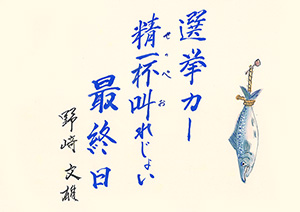 選挙カー
精一杯叫れじょい
せっぺお
最終日
野崎文雄